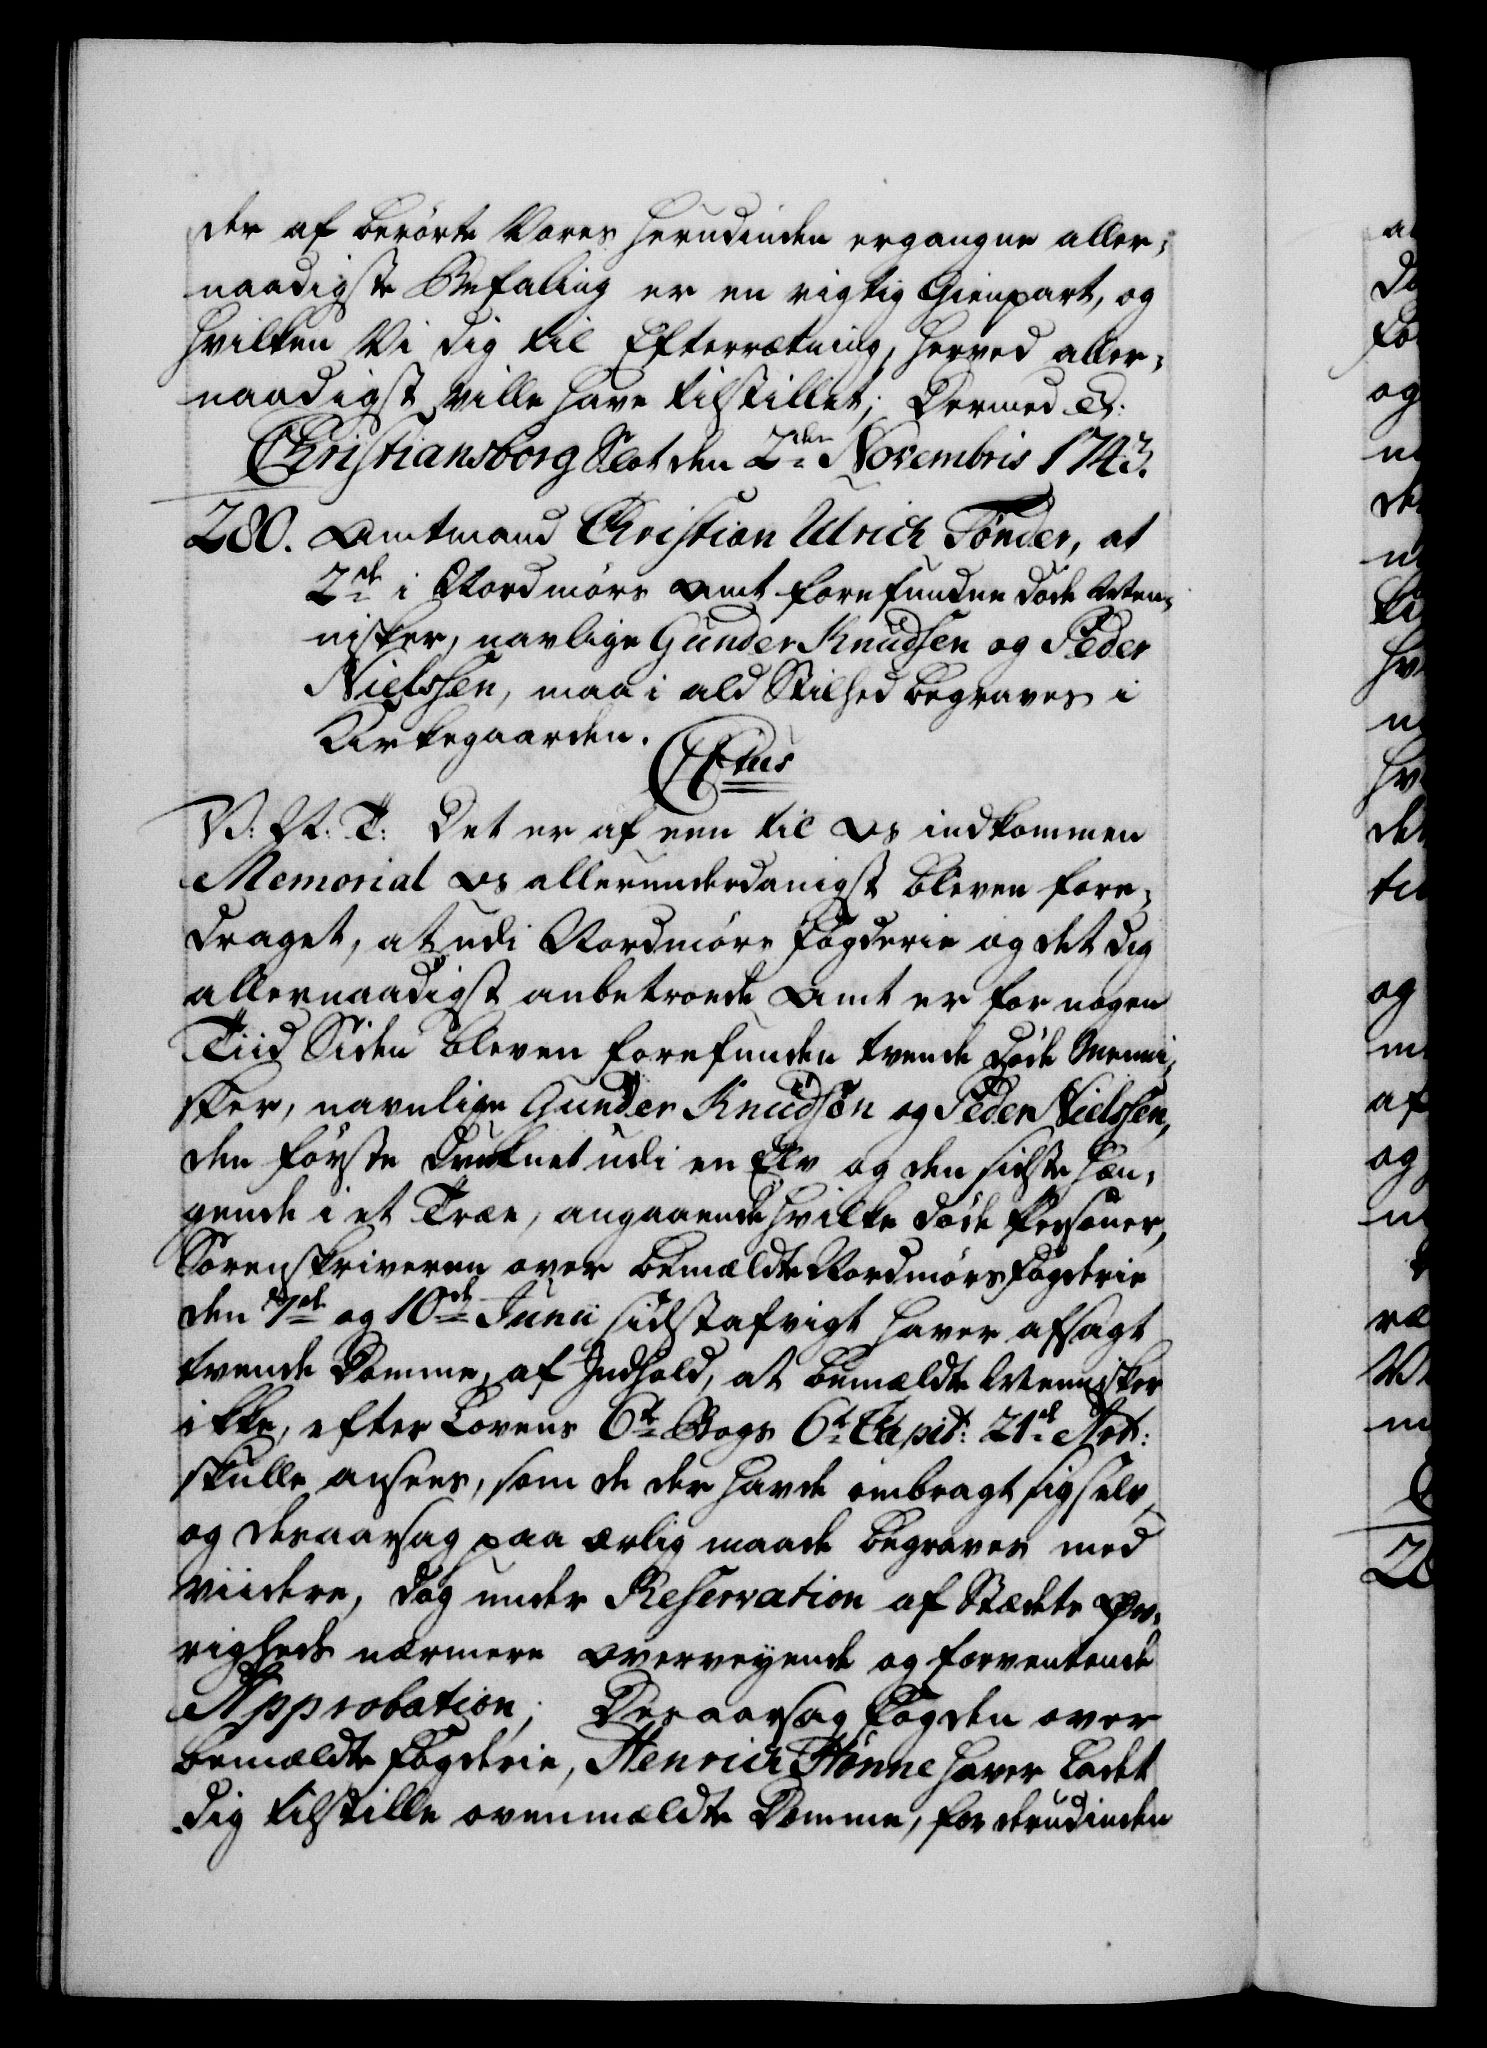 der af berörte Vores herudinden ergangne aller-
naadigste Befaling er en rigtig Gienpart, og
hvilken Vi dig til Efterrætning, herved aller-
naadigst ville have tilstillet; Dermed &:
Christiansborg Slot den 2den Novembris 1743.
280. Amtmand Christian Ulrich Tönder, at
2de i Nordmörs Amt forefundne döde Men-
nisker, navlige Gunder Knudsen og Peder
Nielssen, maa i ald Stilhed begraves i
Kirkegaarden.
C 6tus
V: N: T: Det er af een til Os indkommen
Memorial Os allerunderdanigst bleven fore-
draget, at udi Nordmörs Fogderie og det dig
allernaadigst anbetroede Amt er for nogen
Tiid Siden bleven forefunden tvende döde Menni-
sker, navnlige Gunder Knudsön og Peder Nielssen,
den förste druknet udi en Elv og den sidste hæn-
gende i et Træe, angaaende hvilke döde Personer,
Sorenskriveren over bemældte Nordmörs Fogderie
den 7de og 10de Junii sidstafvigt haver afsagt
tvende Domme, af Indhold, at bemældte Mennisker
ikke, efter Lovens 6te Bogs 6te Capit: 21de Art:
skulle ansees, som de der havde ombragt sig selv,
og deraarsag paa ærlig maade begraves med
viidere, dog under Reservation af Stædets Öv-
righeds nærmere Overveyende og forventende
Approbation; Deraarsag Fogden over
bemældte Fogderie, Henrich Hönne haver ladet
dig tilstille ovenmældte Domme, for derudinden